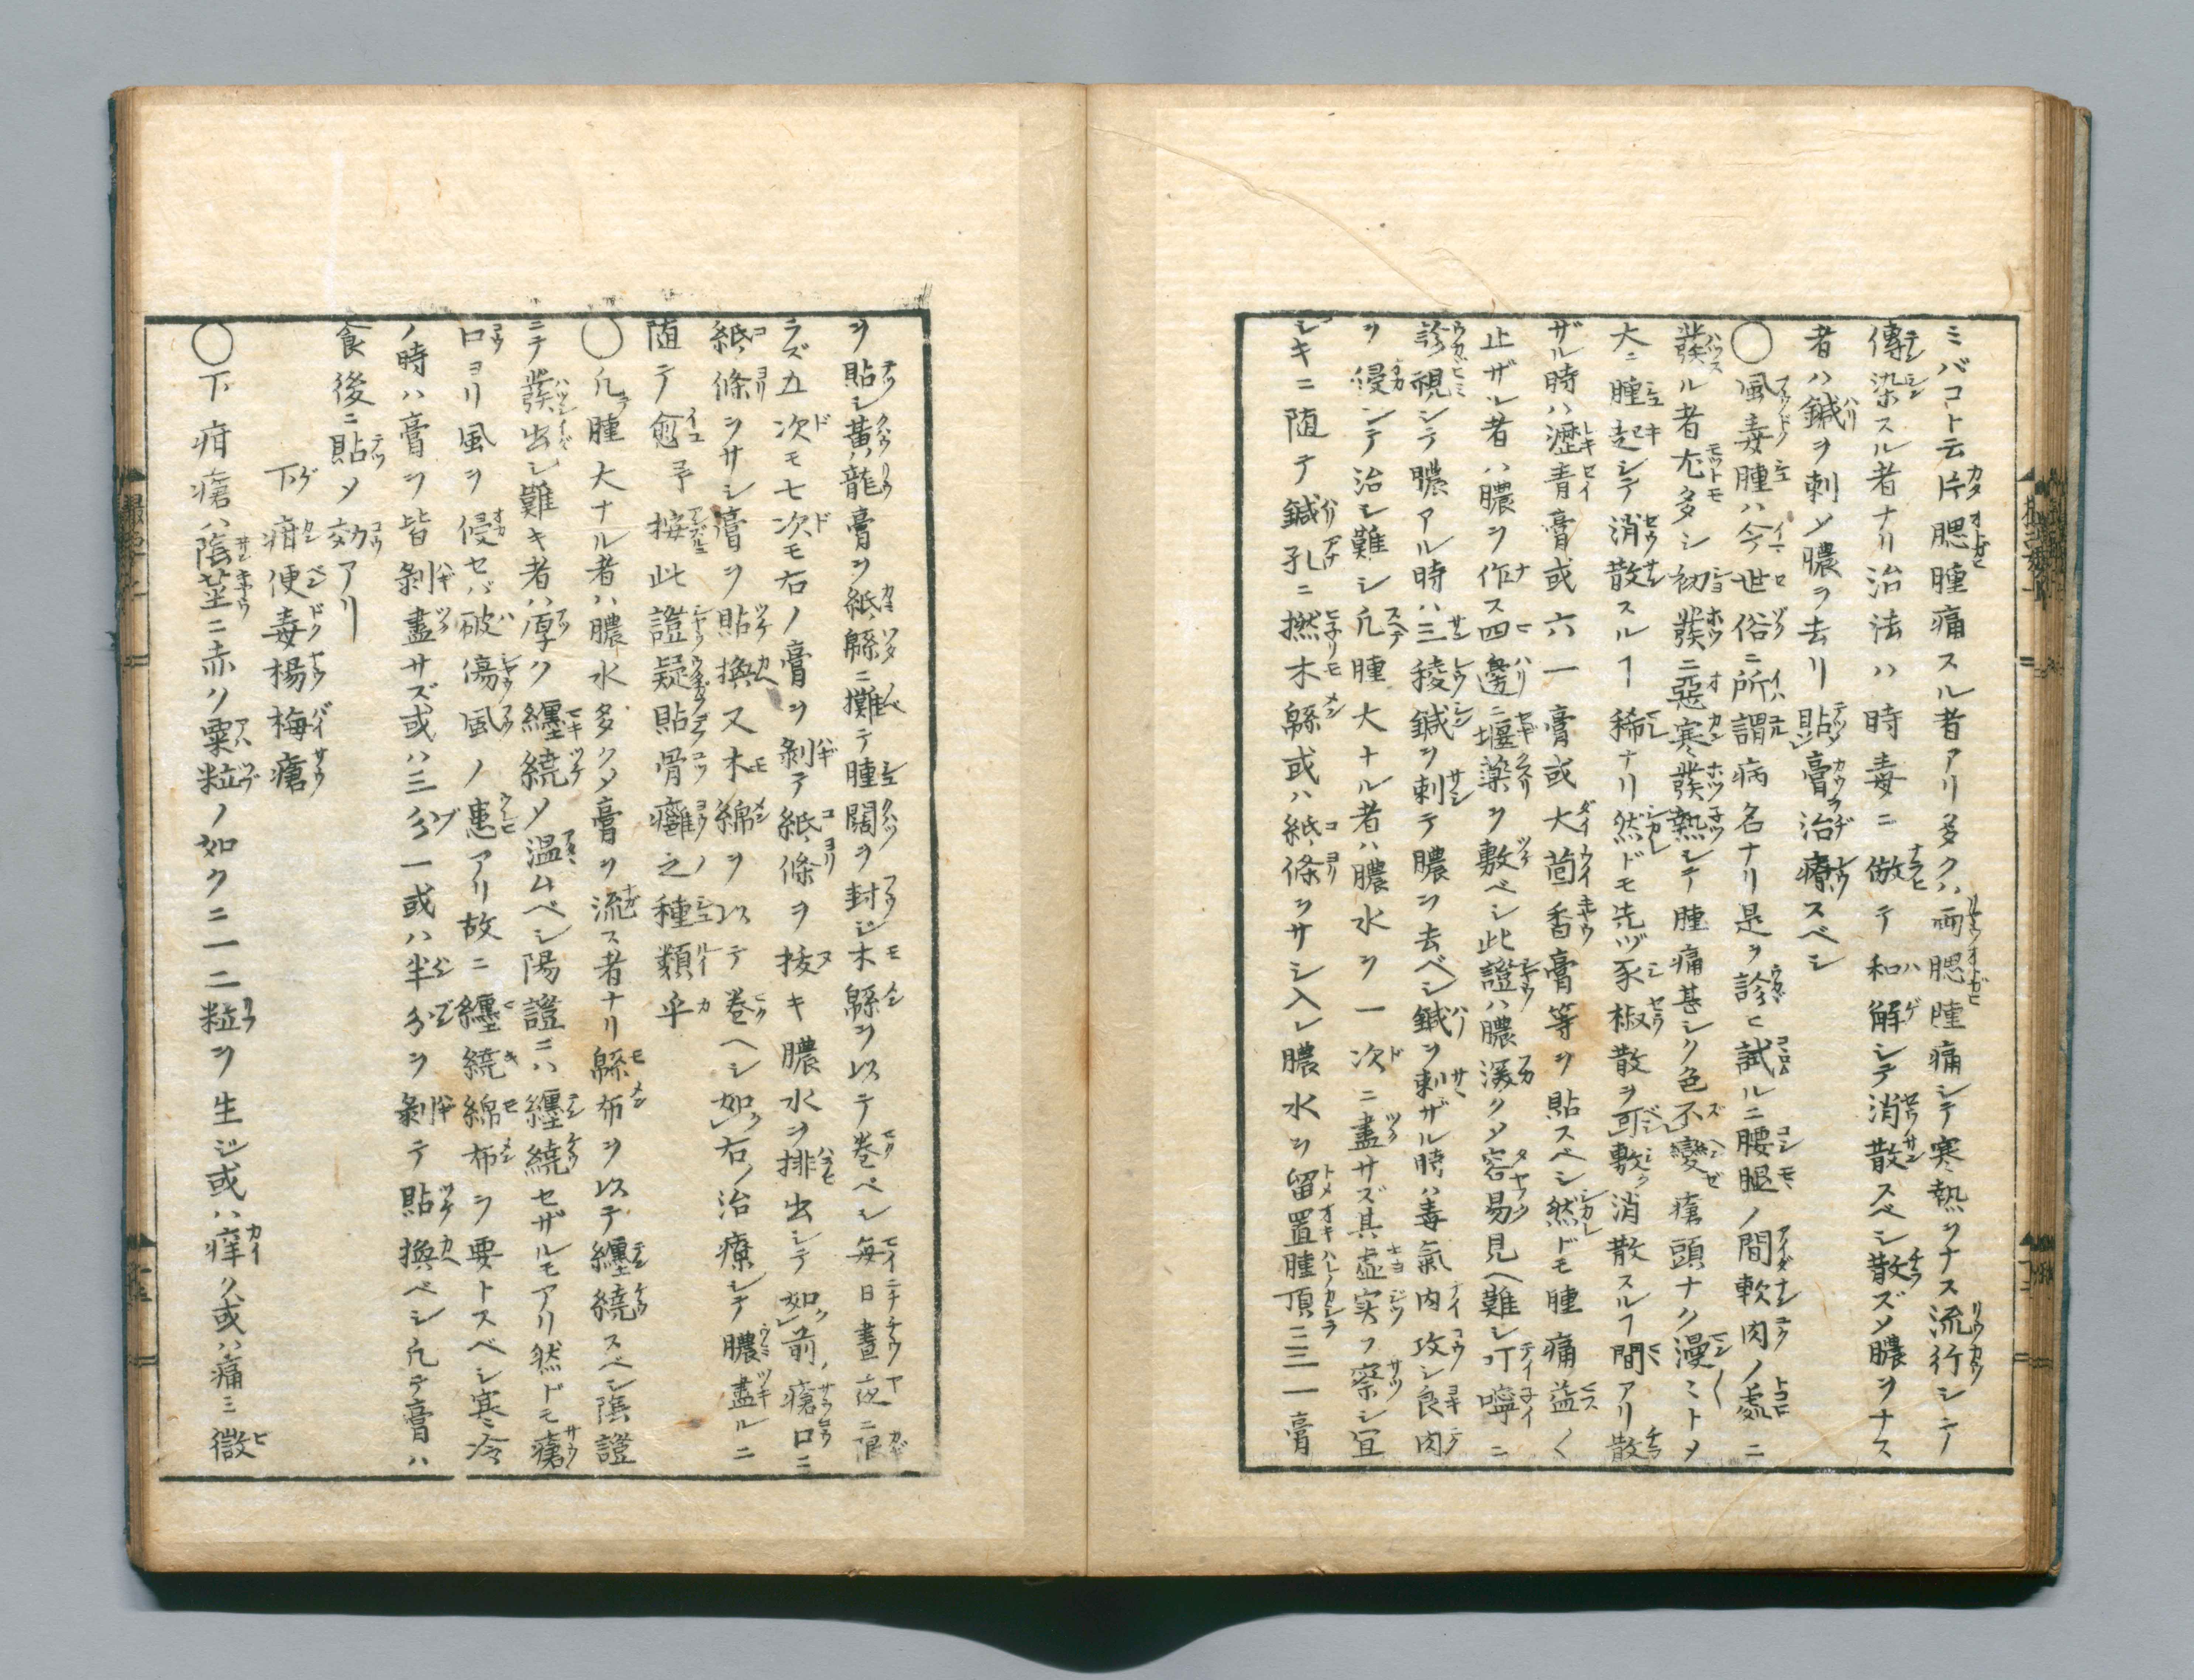 ミバコト云片腮腫痛スル者アリ多クハ両腮腫痛シテ寒熱ヲナス流行シテ
傳染スル者ナリ治法ハ時毒ニ倣テ和解シテ消散スベシ散ズメ膿ヲナス
者ハ鍼ヲ刺メ膿ヲ去リ貼膏治療スベシ
〇風毒腫ハ今世俗ニ所謂病名ナリ是ヲ診ヒ試ルニ腰腿ノ間軟肉ノ處ニ
發ル者尤多シ初發ニ惡寒發熱シテ腫痛甚シク色不變瘡頭ナク漫〱トメ
大ニ腫起シテ消散スルヿ稀ナリ然ドモ先ヅ豕椒散ヲ可敷消散スルヿ間アリ散
ザル時ハ瀝青膏或六一膏或大茴香膏等ヲ貼スベシ然ドモ腫痛益〱
止ザル者ハ膿ヲ作ス四邊ニ堰薬ヲ敷ベシ此證ハ膿深クメ容易見ヘ難シ叮嚀ニ
診視シテ膿アル時ハ三稜鍼ヲ刺テ膿ヲ去ベシ鍼ヲ刺ザル時ハ毒氣内攻シ良肉
ヲ侵シテ治シ難シ凢腫大ナル者ハ膿水ヲ一次ニ盡サズ其虚実ヲ察シ宜
シキニ随テ鍼孔ニ撚木緜或ハ紙條ヲサシ入レ膿水ヲ留置腫頂ニ三一膏
ヲ貼シ黄龍膏ヲ紙緜ニ攤テ腫闊ヲ封ジ木緜ヲ以テ巻ベシ毎日晝夜ニ限
ラズ五次モ七次モ右ノ膏ヲ剝テ紙條ヲ抜キ膿水ヲ排出シテ如前瘡口ニ
紙條ヲサシ膏ヲ貼換又木綿ヲ以テ巻ヘシ如右ノ治療シテ膿盡ルニ
随テ愈ユ按此證疑貼骨癰之種類乎
〇凢腫大ナル者ハ膿水多クメ膏ヲ流ス者ナリ緜布ヲ以テ纒繞スベシ陰證
ニテ發出シ難キ者ハ厚ク纒繞メ温ムベシ陽證ニハ纒繞セザルモアリ然ドモ瘡
口ヨリ風ヲ侵セバ破傷風ノ患アリ故ニ纒繞綿布ヲ要トスベシ寒冷
ノ時ハ膏ヲ皆剝盡サズ或ハ三分一或ハ半分ヲ剝テ貼換ベシ凢テ膏ハ
食後ニ貼メ効アリ
下疳便毒楊梅瘡
〇下疳瘡ハ陰茎ニ赤ク粟粒ノ如ク一二粒ヲ生ジ或ハ痒ク或ハ痛ミ微